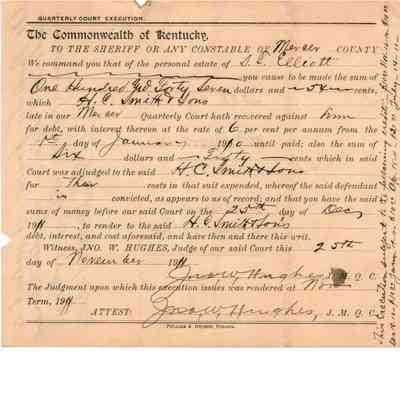 QUARTERLY COURT EXECUTION.
The Commonwealth of Kentucky,
TO THE SHERIFF OR ANY CONSTABLE OF Mercer COUNTY
We command you that of the personal estate of S.C. Elliott
you cause to be made the sum of
One Hundred and Forty Seven dollars and cents,
which H.C. Smith & Sons
late in our Mercer Quarterly Court hath recovered against him
for debt, with interest thereon at the rate of 6 per cent per annum from the
1st day of January 1910 until paid; also the sum of
Six dollars and Sixty cents which in said
Court was adjudged to the said H C Smith & Sons
for Their costs in that suit expended, whereof the said defendant
is convicted, as appears to us of record; and that you have the said
sums of money before our said Court on the 25th day of Dec,
1911, to render to the said H.C. Smith & Sons
debt, interest, and cost aforesaid, and have then and there this writ.
Witness, JNO. W. HUGHES, Judge of our said Court this 25th
day of November 1911.
Jno W Hughes J. M. Q. C.
The Judgment upon which this execution issues was rendered at Nov
Term, 1911
ATTEST: Jno W. Hughes, J. M. Q. C.
This Execution subject to following credits